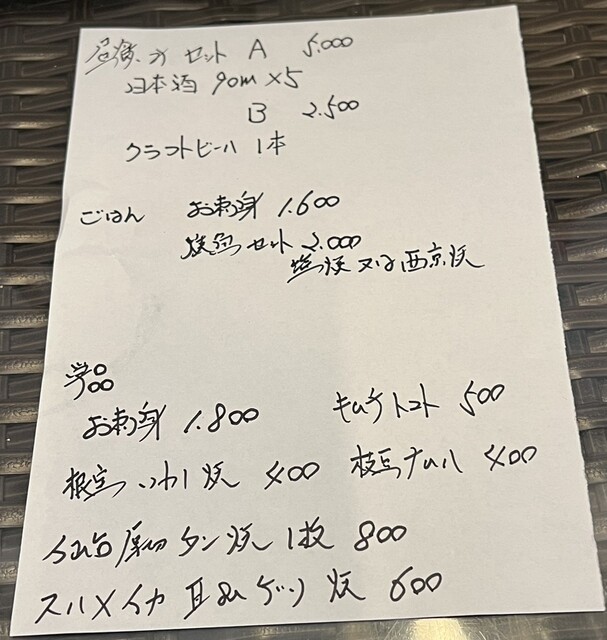 セット A 5.000
日本酒 90m×5
B 2.500
クラフトビール 1本
ごはん お刺身 1.600
焼魚セット 2.000
塩焼 又は 西京焼
お刺身 1.800 キムチトマト 500
いわし焼 400 枝豆ナムル 400
仙台厚切タン焼 1枚 800
スルメイカ 耳&ゲソ焼 600